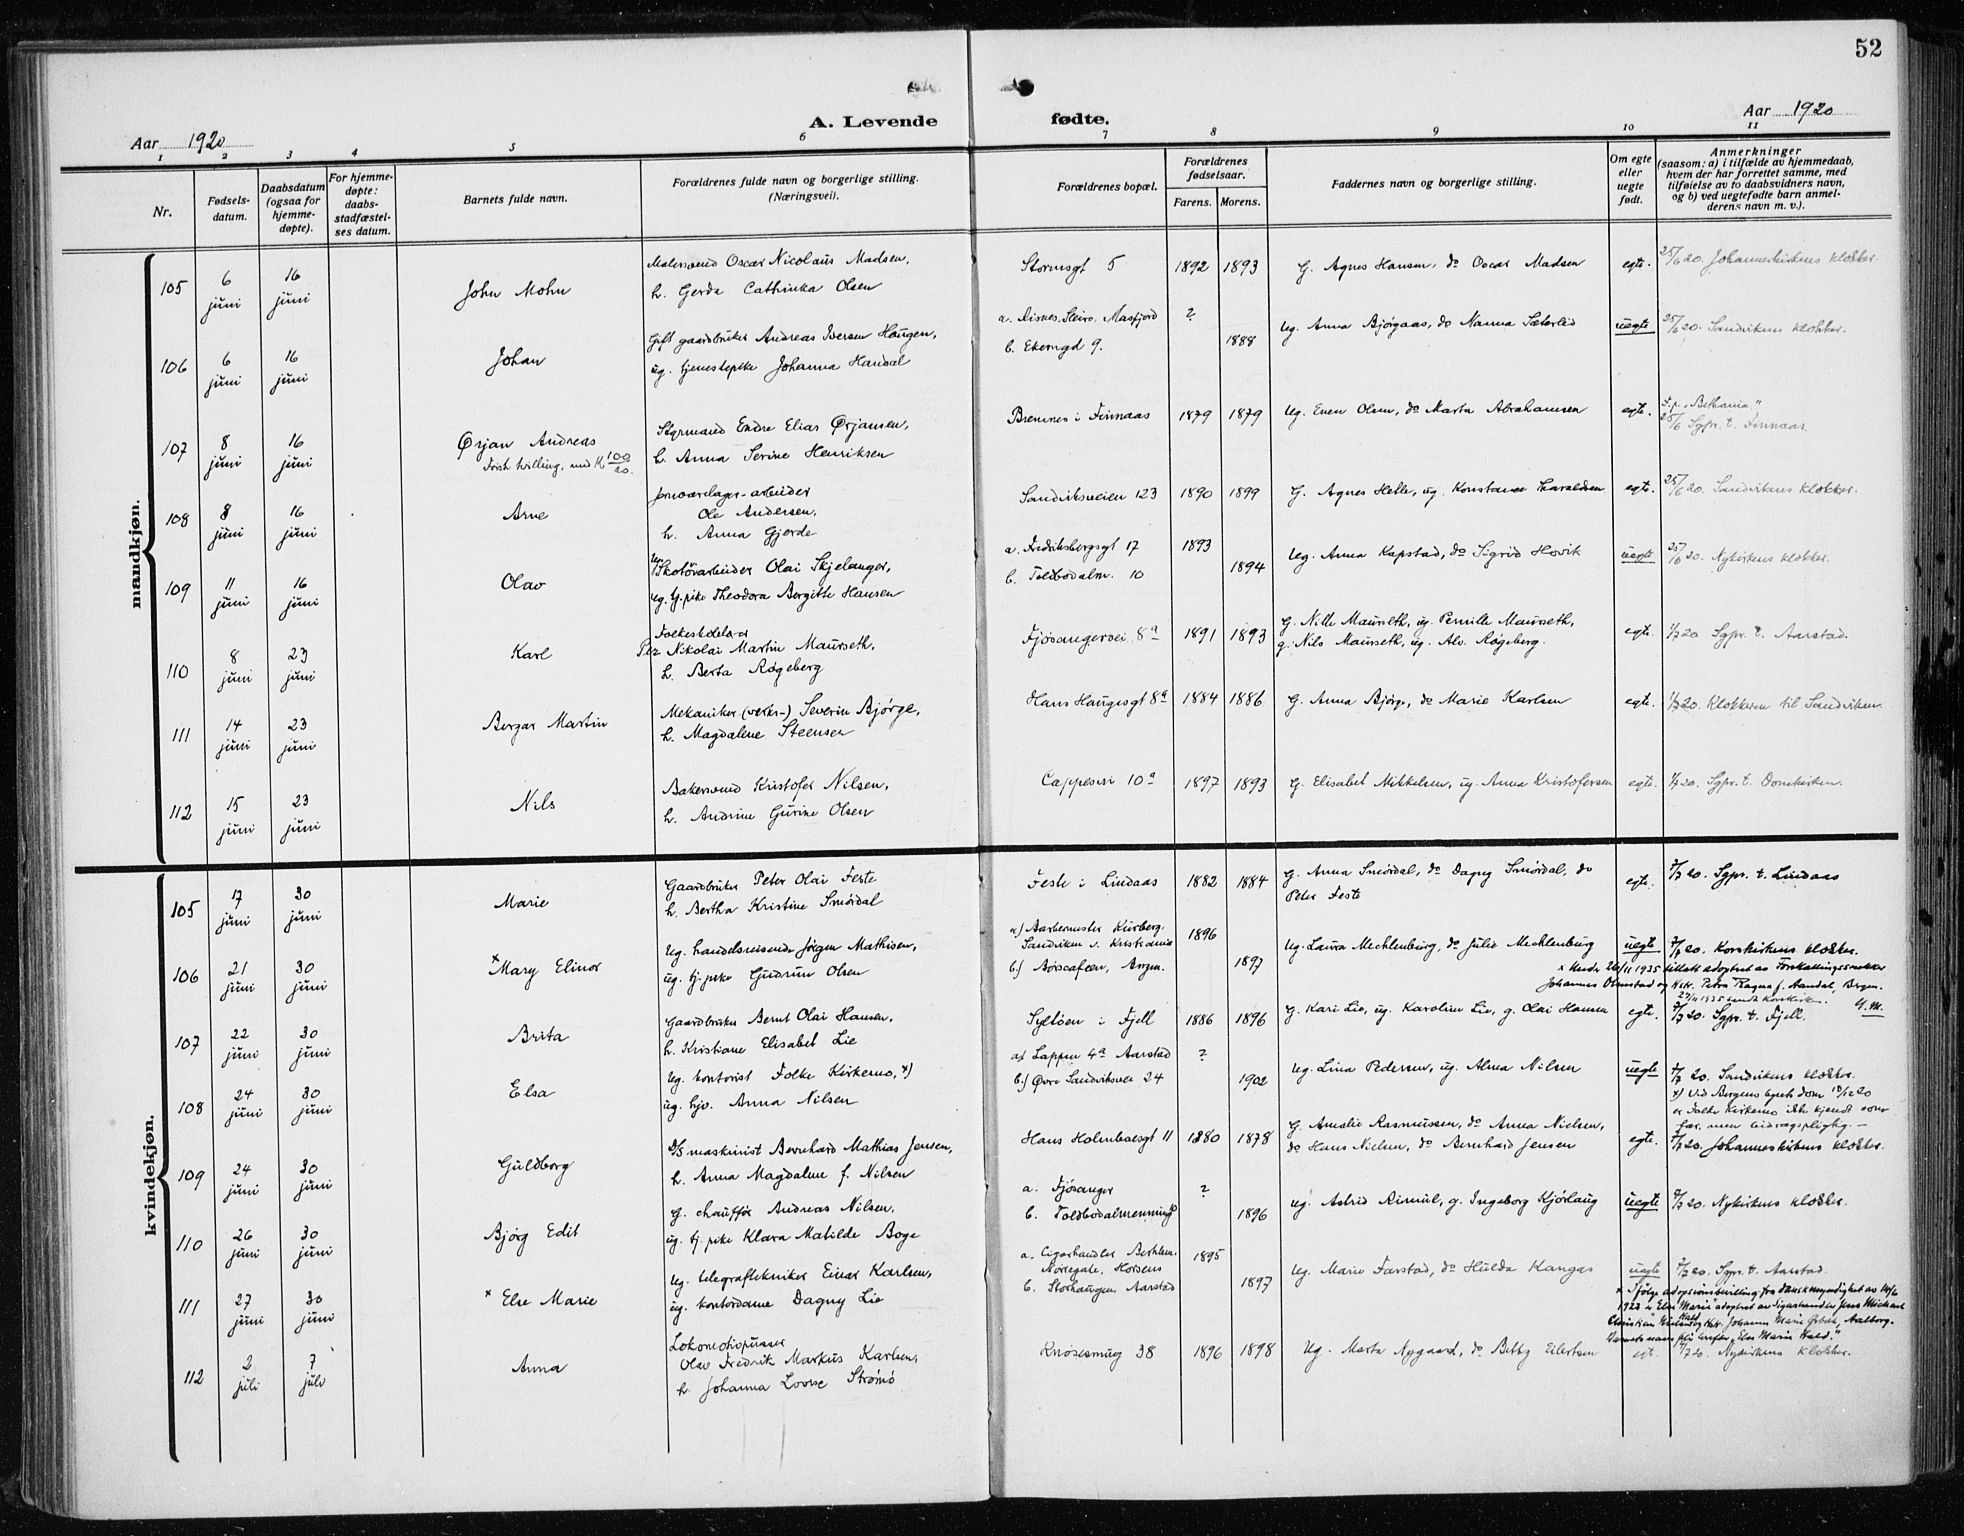 52
A. Levende fødte.
Aar 1920
Aar 1920
1 2 3 4 5 6 7 8 9 10 11
Nr.
Fødsels-
datum.
Daabsdatum
(ogsaa for
hjemme-
døpte).
For hjemme-
døpte:
daabs-
stadfæstel-
ses datum.
Barnets fulde navn.
Forældrenes fulde navn og borgerlige stilling.
(Næringsvei).
Forældrenes bopæl.
Forældrenes
fødselsaar.
Farens. Morens.
Faddernes navn og borgerlige stilling.
Om egte
eller
uegte
født.
Anmerkninger
(saasom: a) i tilfælde av hjemmedaab,
hvem der har forrettet samme, med
tilføielse av to daabsvidners navn,
og b) ved uegtefødte barn anmel-
derens navn m. v.).
mandkjøn.
105 6 juni 16 juni John Mohn
Malersvend Oscar Nicolaus Madsen,
h. Gerda Cathinka Olsen
Stormsgt 5 1892 1893
G. Agnes Hansen, do Oscar Madsen
egte. 25/6 20. Johanneskirkens klokker.
106 6 juni 16 juni Johan
Gift gaardbruker Andreas Iversen Haugen,
ug. tjenestepike Johanna Handal
a. Risnes, Masfjord ?
b. Ekerngd 9. 1888
Ug. Anna Bjørgaas, do Nanna Sæterlid
uegte 25/6 20. Sandvikens klokker.
107 8 juni 16 juni Ørjan Andreas
først tvilling, med K 100/20.
Styrmand Endre Elias Ørjansen,
h. Anna Serine Henriksen
Bremnes i Finnaas 1879 1879
Ug. Even Olsen, do Marta Abrahamsen
egte. F.p. "Bethania"
25/6 Sgpr. t. Finnaas.
108 8 juni 16 juni Arne
Jernvarelager-arbeider
Ole Andersen,
h. Anna Gjerde
Sandviksveien 123 1890 1899
G. Agnes Helle, ug. Konstanse Haraldsen
egte. 25/6 20. Sandvikens klokker.
109 11 juni 16 juni Olav
Ug. Skotøiarbeider Olai Skjelanger,
ug. tj.pike Theodora Bergitte Hansen
a. Fredriksbergsgt 17 1893
b. Toldbodalm. 10 1894
Ug. Anna Kapstad, do Sigrid Hovik
uegte 25/6 20. Nykirkens klokker.
110 8 juni 23 juni Karl
Folkeskolelærer
Per Nikolai Martin Maurseth,
h. Berta Røgeberg
Fjøsangervei 8a 1891 1893
G. Nille Maurseth, ug. Pernille Maurseth,
g. Nils Maurseth, ug. Alv. Røgeberg.
egte. 1/7 20 Sgpr. t. Aarstad.
111 14 juni 23 juni Bergar Martin
Mekaniker Severin Bjørge,
h. Magdalene Steensen
Hans Haugesgt 8a 1884 1886
G. Anna Bjørge, do Marie Karlsen
egte. 1/7 20. Klokkeren til Sandviken.
112 15 juni 23 juni Nils
Bakersvend Kristofer Nilsen,
h. Andrine Gurine Olsen
Cappesvei 10a 1897 1893
G. Elisabet Mikkelsen, ug. Anna Kristofersen
egte. 1/7 20. Sgpr. t. Domkirken.
kvindekjøn.
105 17 juni 30 juni Marie
Gaardbruker Peter Olai Feste
h. Bertha Kristine Smørdal
Feste i Lindaas 1882 1884
G. Anna Smørdal, do Dagny Smørdal, do
Peter Feste
egte. 7/7 20. Sgpr. t. Lindaas
106 21 juni 30 juni × Mary Elinor
Ug. handelsreisende Jørgen Mathisen,
ug. tj.pike Gudrun Olsen
Sandviken v. Kristiania 1896
1897
Ug. Laura Mechlenburg, do Julie Mechlenburg
uegte 7/7 20. Korskirkens klokker.
107 22 juni 30 juni Brita
Gaardbruker Bernt Olai Hansen,
h. Kristiane Elisabet Lie
Syltøen i Fjell 1886 1896
G. Kari Lie, ug. Karoline Lie, g. Olai Hansen
egte. 7/7 20. Sgpr. t. Fjell.
108 24 juni 30 juni Elsa
Ug. kontorist Folke Kirkemo, ×)
ug. hjv. Anna Nilsen
a) Lappen 4a Aarstad ?
b.) Øvre Sandviksvei 24 1902
Ug. Lina Pedersen, ug. Alma Nilsen
uegte 7/7 20. Sandvikens klokker.
×) Ved Bergens byrets dom 18/12 20
er Folke Kirkemo ikke kjendt som
far, men bidragspligtig. —
109 24 juni 30 juni Guldborg
D/S maskinist Bernhard Mathias Jensen,
h. Anna Magdalene f. Nilsen
Hans Holmboesgt 11 1880 1878
G. Amalie Rasmussen, do Anna Nielsen,
do Hans Nielsen, do Bernhard Jensen
egte. 7/7 20. Johanneskirkens klokker.
110 26 juni 30 juni Bjørg Edit
G. chauffør Andreas Nilsen,
ug. tj. pike Klara Matilde Boge
a. Fjøsanger ?
b. Toldbodalmenning 1896
Ug. Astrid Rimul, g. Ingeborg Kjørlaug
uegte 7/7 20. Nykirkens klokker.
111 27 juni 30 juni × Else Marie
Ug. telegraftekniker Einar Karlsen,
ug. kontordame Dagny Lie
a. Cigarhandler
Nørregate, Horsens 1895
b. Storhaugen, Aarstad 1897
Ug. Marie Farstad, do Hulda Kangas
uegte 7/7 20. Sgpr. t. Aarstad.
112 2 juli 7 juli Anna
Lokomotivpusser
Olav Fredrik Markus Karlsen,
h. Johanna Lovise Strømø
Knøsesmug 38 1896 1898
Ug. Marta Nygaard, do Betty Eilertsen
Nykirkens klokker.